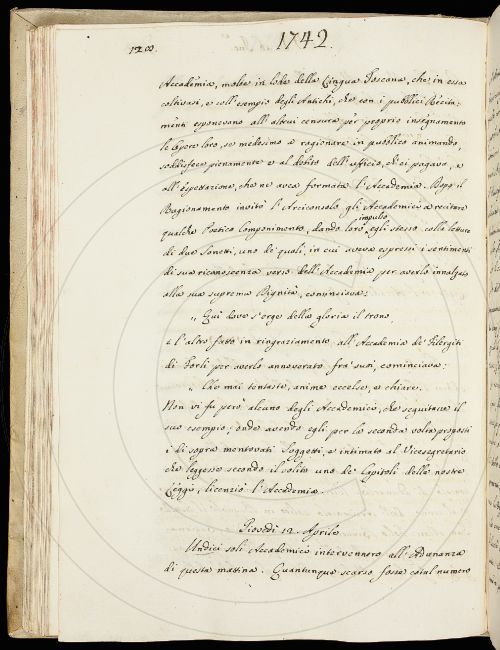 120.
1742.
Accademia, molte in lode della Lingua Toscana, che in essa
coltivasi, e coll'esempio degli Antichi, che con i pubblici Recita-
menti esponevano all'altrui censura per proprio insegnamento
le opere loro, se medesimo a ragionare in pubblico animando,
soddisfece pienamente e al debito dell'ufficio, ch'ei pagava, e
all'espettazione, che ne avea formata l'Accademia. Dopo il
Ragionamento invitò l'Arciconsolo gli Accademici a recitare
qualche Poetico Componimento, dando loro impulso egli stesso colla lettura
di due Sonetti, uno de' quali, in cui aveva espressi i sentimenti
di sua riconoscenza verso dell'Accademia per averlo innalzato
alla sua suprema Dignità, cominciava:
„ Qui dove s'erge della gloria il trono.
e l'altro fatto in ringraziamento all'Accademia de' Filergiti
di Forlì per averlo annoverato fra' suoi, cominciava:
„ Che mai tentaste, anime eccelse, e chiare.
Non vi fu però alcuno degli Accademici, che seguitasse il
suo esempio; onde avendo egli per la seconda volta proposti
i di sopra mentovati Soggetti, e intimato al Vicesegretario
che leggesse secondo il solito uno de' Capitoli delle nostre
Leggi, licenziò l'Accademia.
Giovedì 12. Aprile
Undici soli Accademici intervennero all'Adunanza
di questa mattina. Quantunque scarso fosse cotal numero